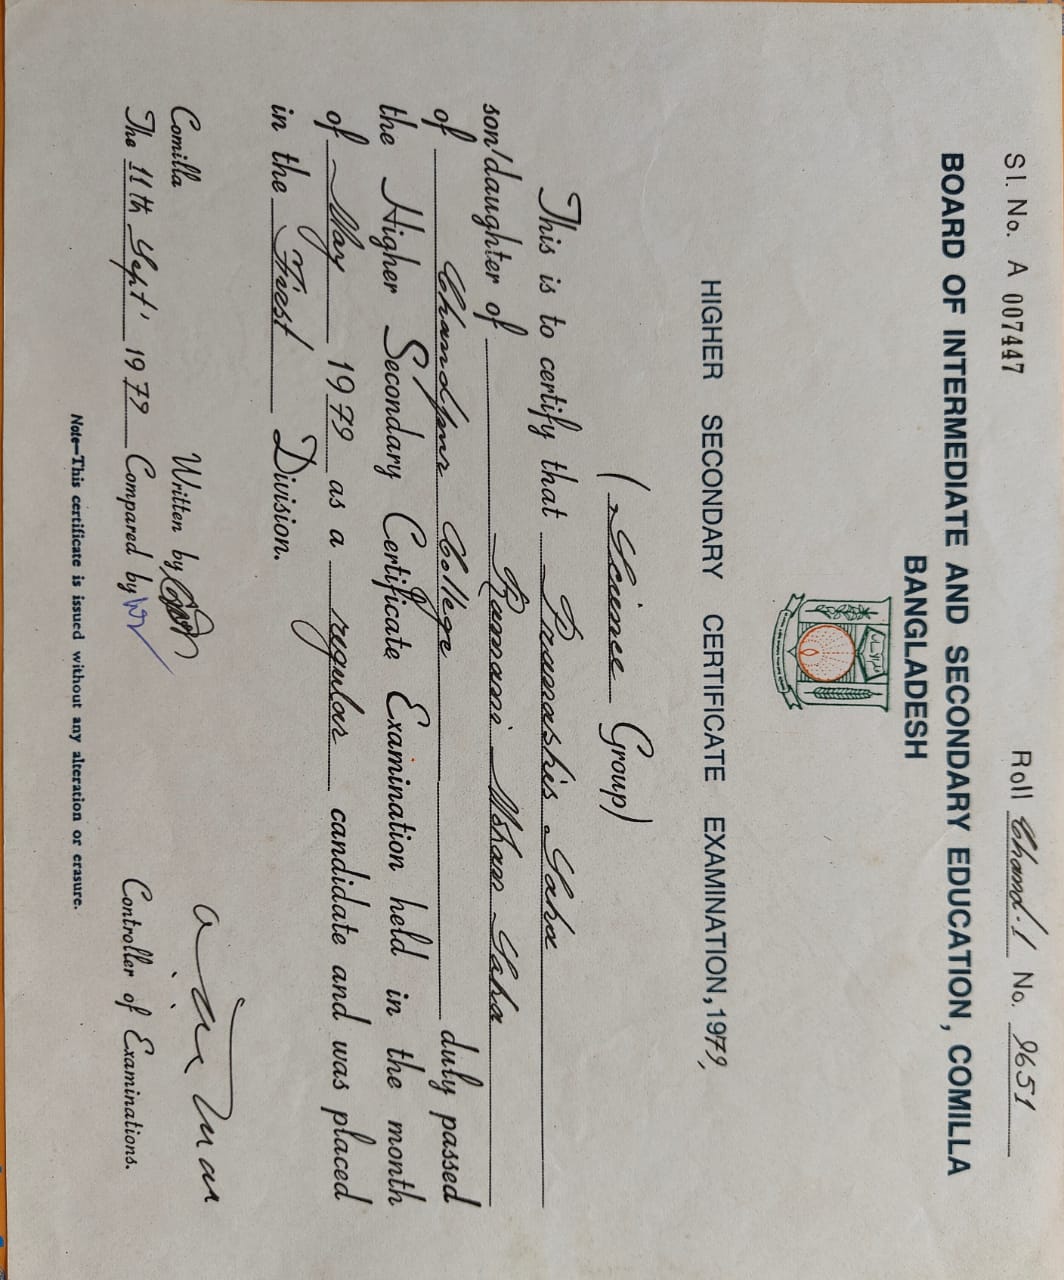 Sl. No. A 007447 Roll Chand-1 No. 9651
BOARD OF INTERMEDIATE AND SECONDARY EDUCATION, COMILLA
BANGLADESH
HIGHER SECONDARY CERTIFICATE EXAMINATION, 1979,
(Science Group)
This is to certify that Debashis Saha
son/daughter of Ramani Mohan Saha
of Chandpur College duly passed
the Higher Secondary Certificate Examination held in the month
of May 1979 as a regular candidate and was placed
in the First Division.
Comilla Written by
The 11th Sept' 1979 Compared by Controller of Examinations.
Note—This certificate is issued without any alteration or erasure.